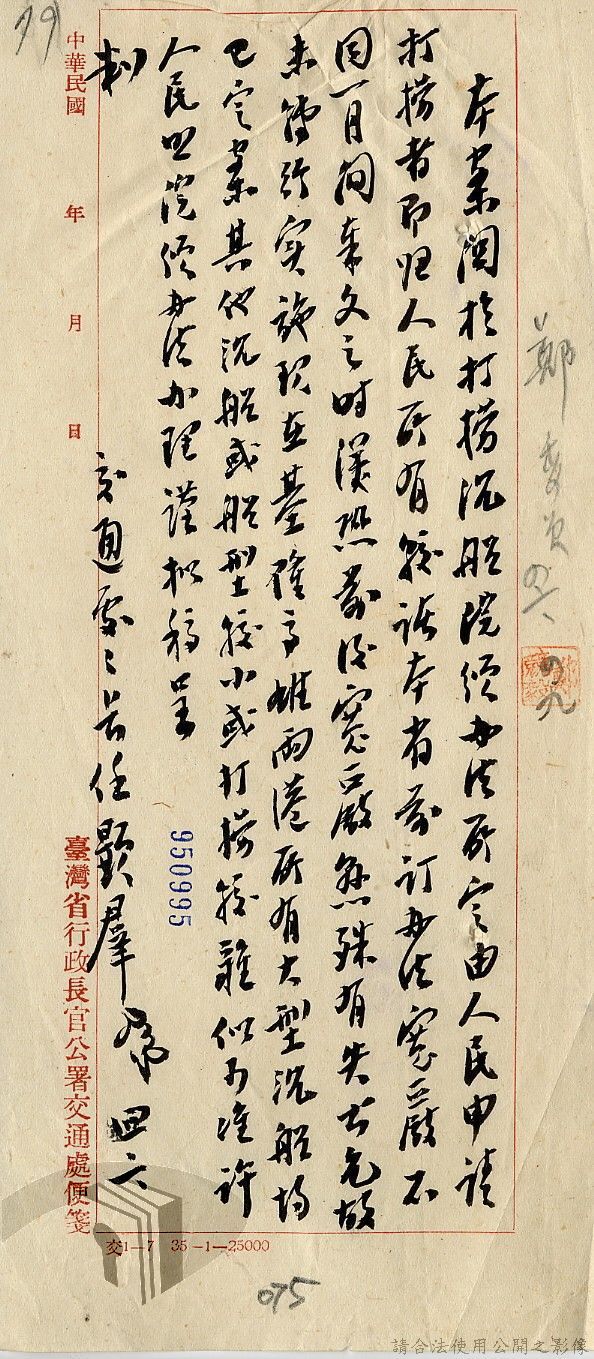 鄭委員 四六
四九
本案関於打撈沉船院頒办法所定由人民申請
打撈者即归人民所有較諸本省前訂办法寬嚴不
同一月間奉文之時恐前後寬嚴懸殊有失故
未轉行实施現在基隆高雄兩港所有大型沉船均
已定案其他沉船或船型較小或打撈較難似可准許
人民照院頒办法办理謹擬稿呈
判
交通處々長任顯羣 四六
950995
中華民國 年 月 日
臺灣省行政長官公署交通處便箋
交1—7 35—1—25000
075
請合法使用公開之影像